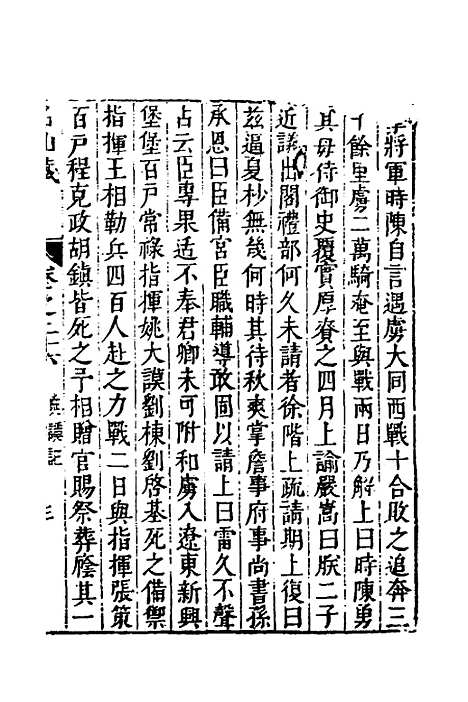 將軍時陳自言遇虜大同西戰十合敗之追奔三
十餘里虜二萬騎奄至與戰兩日乃解上曰時陳勇
其毋待御史覆實厚賚之四月上諭嚴嵩曰朕二子
近議出閣禮部何久未請者徐階上疏請期上復曰
茲逼夏杪無幾何時其待秋爽掌詹事府事尚書孫
承恩曰臣備宮臣職輔導敢固以請上曰雷久不聲
占云臣專果适不奉君卿未可附和虜入遼東新興
堡堡百戶常祿指揮姚大謨劉棟劉啓基死之備禦
指揮王相勒兵四百人赴之力戰二日與指揮張策
百戶程克政胡鎮皆死之予相贈官賜祭葬廕其一
名山藏 卷之二六 典謨記 三